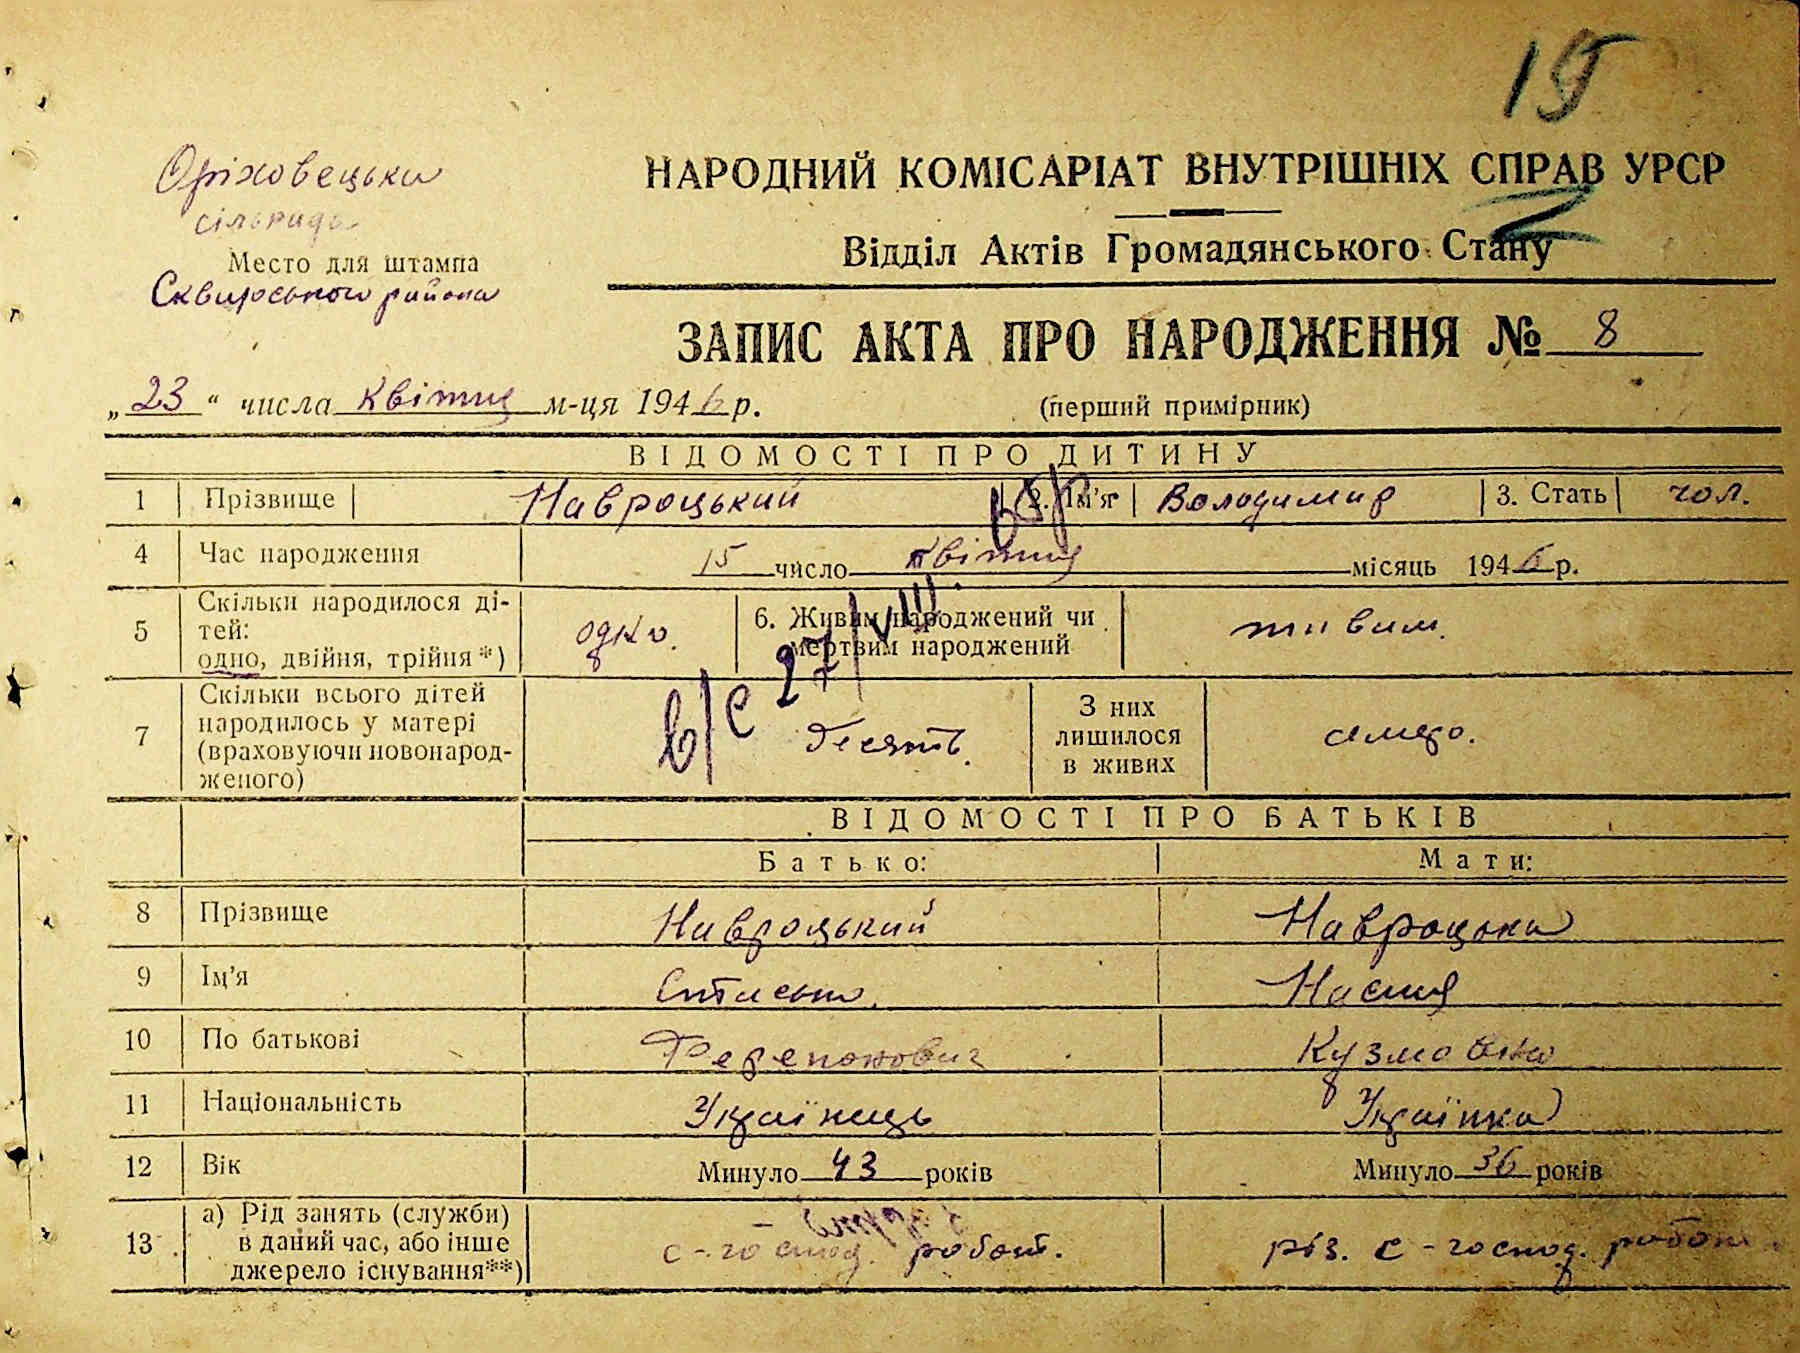 15
Оріховецька
сільрада
Место для штампа
Сквирського района
НАРОДНИЙ КОМІСАРІАТ ВНУТРІШНІХ СПРАВ УРСР
Відділ Актів Громадянського Стану
ЗАПИС АКТА ПРО НАРОДЖЕННЯ № 8
„23“ числа квітня м-ця 1946 р.
(перший примірник)
ВІДОМОСТІ ПРО ДИТИНУ
1 Прізвище Навроцький 2. Ім'я Володимир 3. Стать чол.
4 Час народження 15 число квітня місяць 1946 р.
5 Скільки народилося ді-
тей:
одно, двійня, трійня*)
одно.
6. Живим народжений чи
мертвим народжений
живим.
в/с 27/VIII.
7 Скільки всього дітей
народилось у матері
(враховуючи новонарод-
женого)
десять.
З них
лишилося
в живих
семеро.
ВІДОМОСТІ ПРО БАТЬКІВ
Батько: Мати:
8 Прізвище Навроцький Навроцька
9 Ім'я Настя
10 По батькові Ферепонович Кузмовна
11 Національність Українець Українка
12 Вік Минуло 43 років Минуло 36 років
13 а) Рід занять (служби)
в даний час, або інше
джерело існування**)
с-господ. робот.
різ. с-господ. робот.